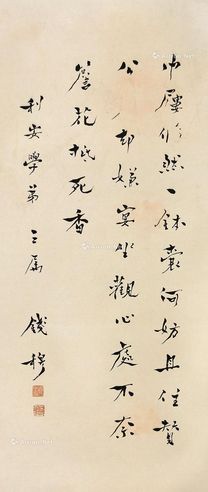 巾屨翛然一鉢囊何妨且住贊
公房却嫌宴坐觀心處不奈
簷花抵死香
利安學弟之屬
錢穆